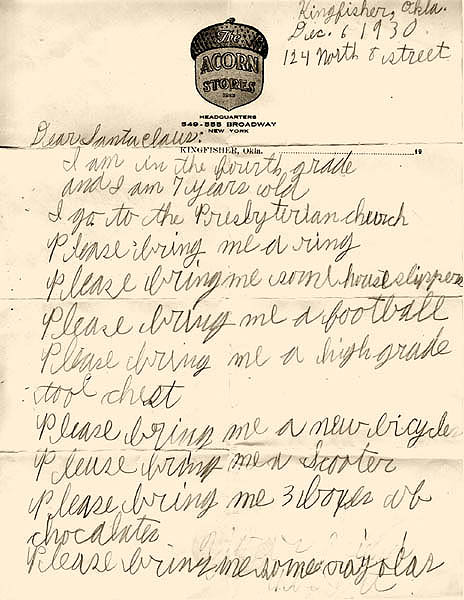 Kingfisher, Okla.
Dec. 6 1930.
124 North 8 street
The
ACORN
STORES
HEADQUARTERS
549-555 BROADWAY
NEW YORK
KINGFISHER, Okla. 19
Dear Santa claus:
I am in the fourth grade
and I am 7 years old
I go to the Presbyterian church
Please bring me a ring
Please bring me some house slippers
Please bring me a football
Please bring me a high grade
tool chest
Please bring me a new bicycle
Please bring me a scooter
Please bring me 3 boxes of
chocalates
Please bring me some